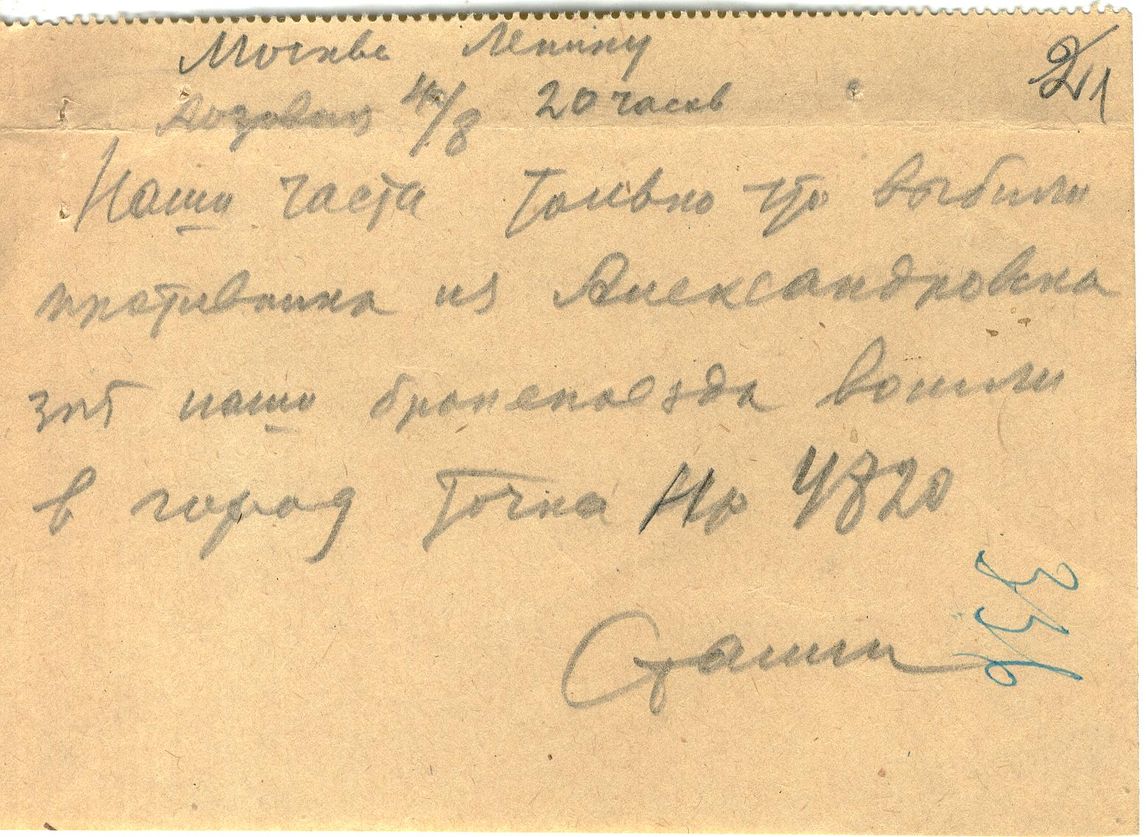 Москва Ленину
21
Лозовая 4/8 20 часов
Наши части только что выбили
противника из Александровска
зпт наши бронепоезда вошли
в город Точка Нр 4820
336
Сталин